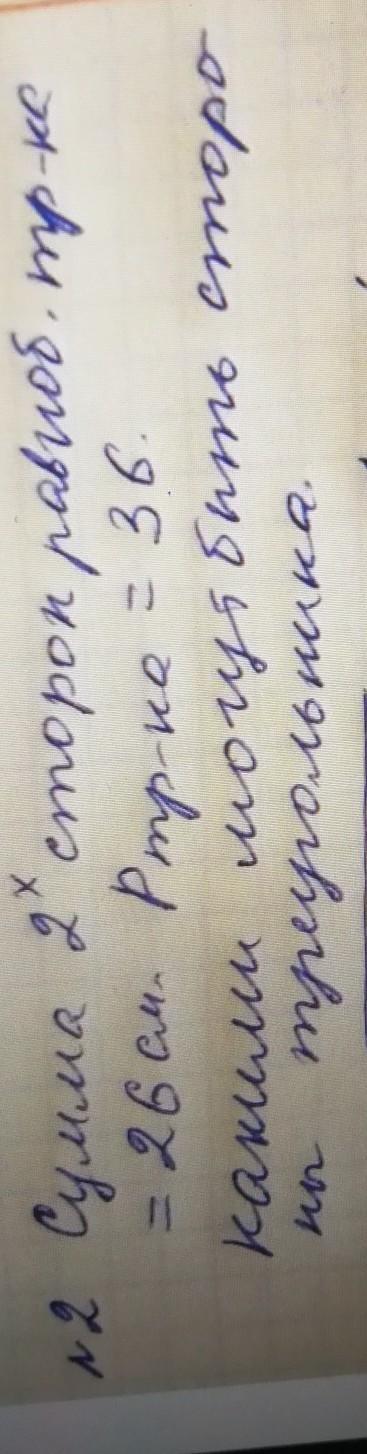 №2 Сумма 2х сторон равноб. тр-ка
= 26 см. Pтр-ка = 36.
какими могут быть сторо
ны треугольника.